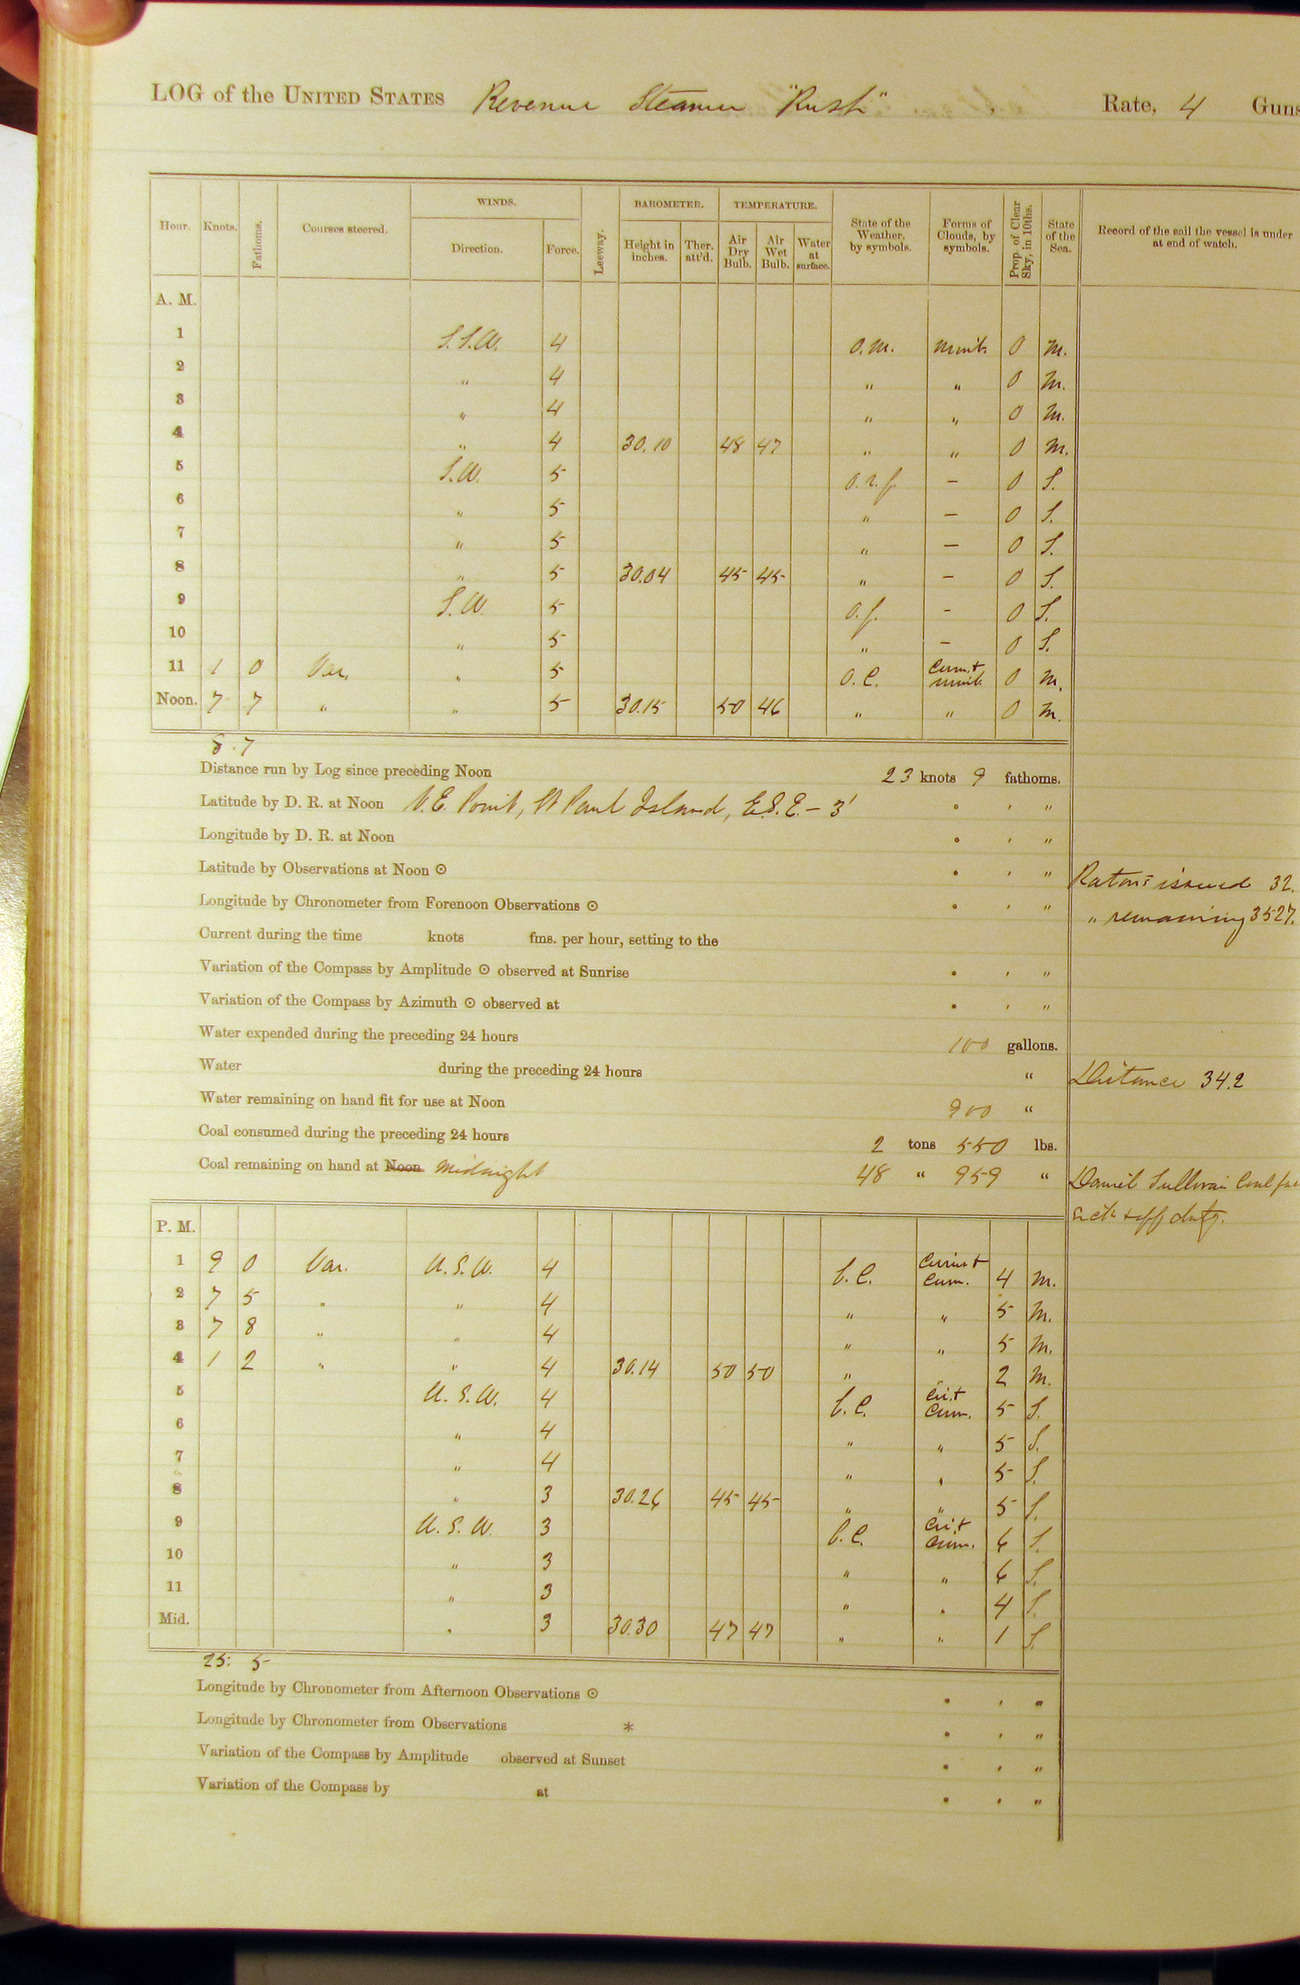 LOG of the UNITED STATES Revenue Steamer "Rush", Rate, 4 Guns
Hour. Knots. Fathoms. Courses steered. WINDS. Direction. Force. Leeway. BAROMETER. Height in inches. Ther. att'd. TEMPERATURE. Air Dry Bulb. Air Wet Bulb. Water at surface. State of the Weather, by symbols. Forms of Clouds, by symbols. Prop. of Clear Sky, in 10ths. State of the Sea. Record of the sail the vessel is under at end of watch.
A. M.
1 S.S.W. 4 O.M. Nimb. 0 M.
2 " 4 " " 0 M.
3 " 4 " " 0 M.
4 " 4 30.10 48 47 " " 0 M.
5 S.W. 5 O.r.f. — 0 S.
6 " 5 " — 0 S.
7 " 5 " — 0 S.
8 " 5 30.04 45 45 " — 0 S.
9 S.W. 5 O.f. - 0 S.
10 " 5 " — 0 S.
11 1 0 Var. " 5 O.C. Cum.+ Nimb. 0 M.
Noon. 7 7 " " 5 30.15 50 46 " " 0 M.
8.7
Distance run by Log since preceding Noon 23 knots 9 fathoms.
Latitude by D. R. at Noon N.E. Point, St Paul Island, E.S.E. — 3' ° ' "
Longitude by D. R. at Noon ° ' "
Latitude by Observations at Noon ⊙ ° ' "
Rations issued 32.
Longitude by Chronometer from Forenoon Observations ⊙ ° ' "
" remaining 3527.
Current during the time knots fms. per hour, setting to the
Variation of the Compass by Amplitude ⊙ observed at Sunrise ° ' "
Variation of the Compass by Azimuth ⊙ observed at ° ' "
Water expended during the preceding 24 hours 100 gallons.
Water during the preceding 24 hours "
Distance 34.2
Water remaining on hand fit for use at Noon 900 "
Coal consumed during the preceding 24 hours 2 tons 550 lbs.
Coal remaining on hand at Noon Midnight 48 " 959 "
Daniel Sullivan Coal
sick & off duty.
P. M.
1 9 0 Var. W.S.W. 4 b.c. Cum. 4 M.
2 7 5 " " 4 " " 5 M.
3 7 8 " " 4 " " 5 M.
4 1 2 " " 4 30.14 50 50 " " 2 M.
5 W.S.W. 4 b.c. Cir.+ Cum. 5 S.
6 " 4 " " 5 S.
7 " 4 " " 5 S.
8 " 3 30.26 45 45 " " 5 S.
9 W.S.W. 3 b.c. Cir.+ Cum. 6 S.
10 " 3 " " 6 S.
11 " 3 " " 4 S.
Mid. " 3 30.30 47 47 " " 1 S.
25. 5
Longitude by Chronometer from Afternoon Observations ⊙ ° ' "
Longitude by Chronometer from Observations * ° ' "
Variation of the Compass by Amplitude observed at Sunset ° ' "
Variation of the Compass by at ° ' "